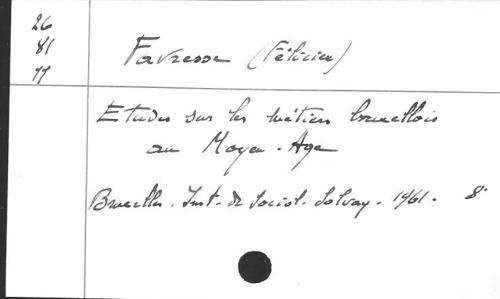 26
81
11
Favresse (Félicien)
Etudes sur les métiers bruxellois
au Moyen-Age
Bruxelles. Inst. de Sociol. Solvay. 1961. 8°